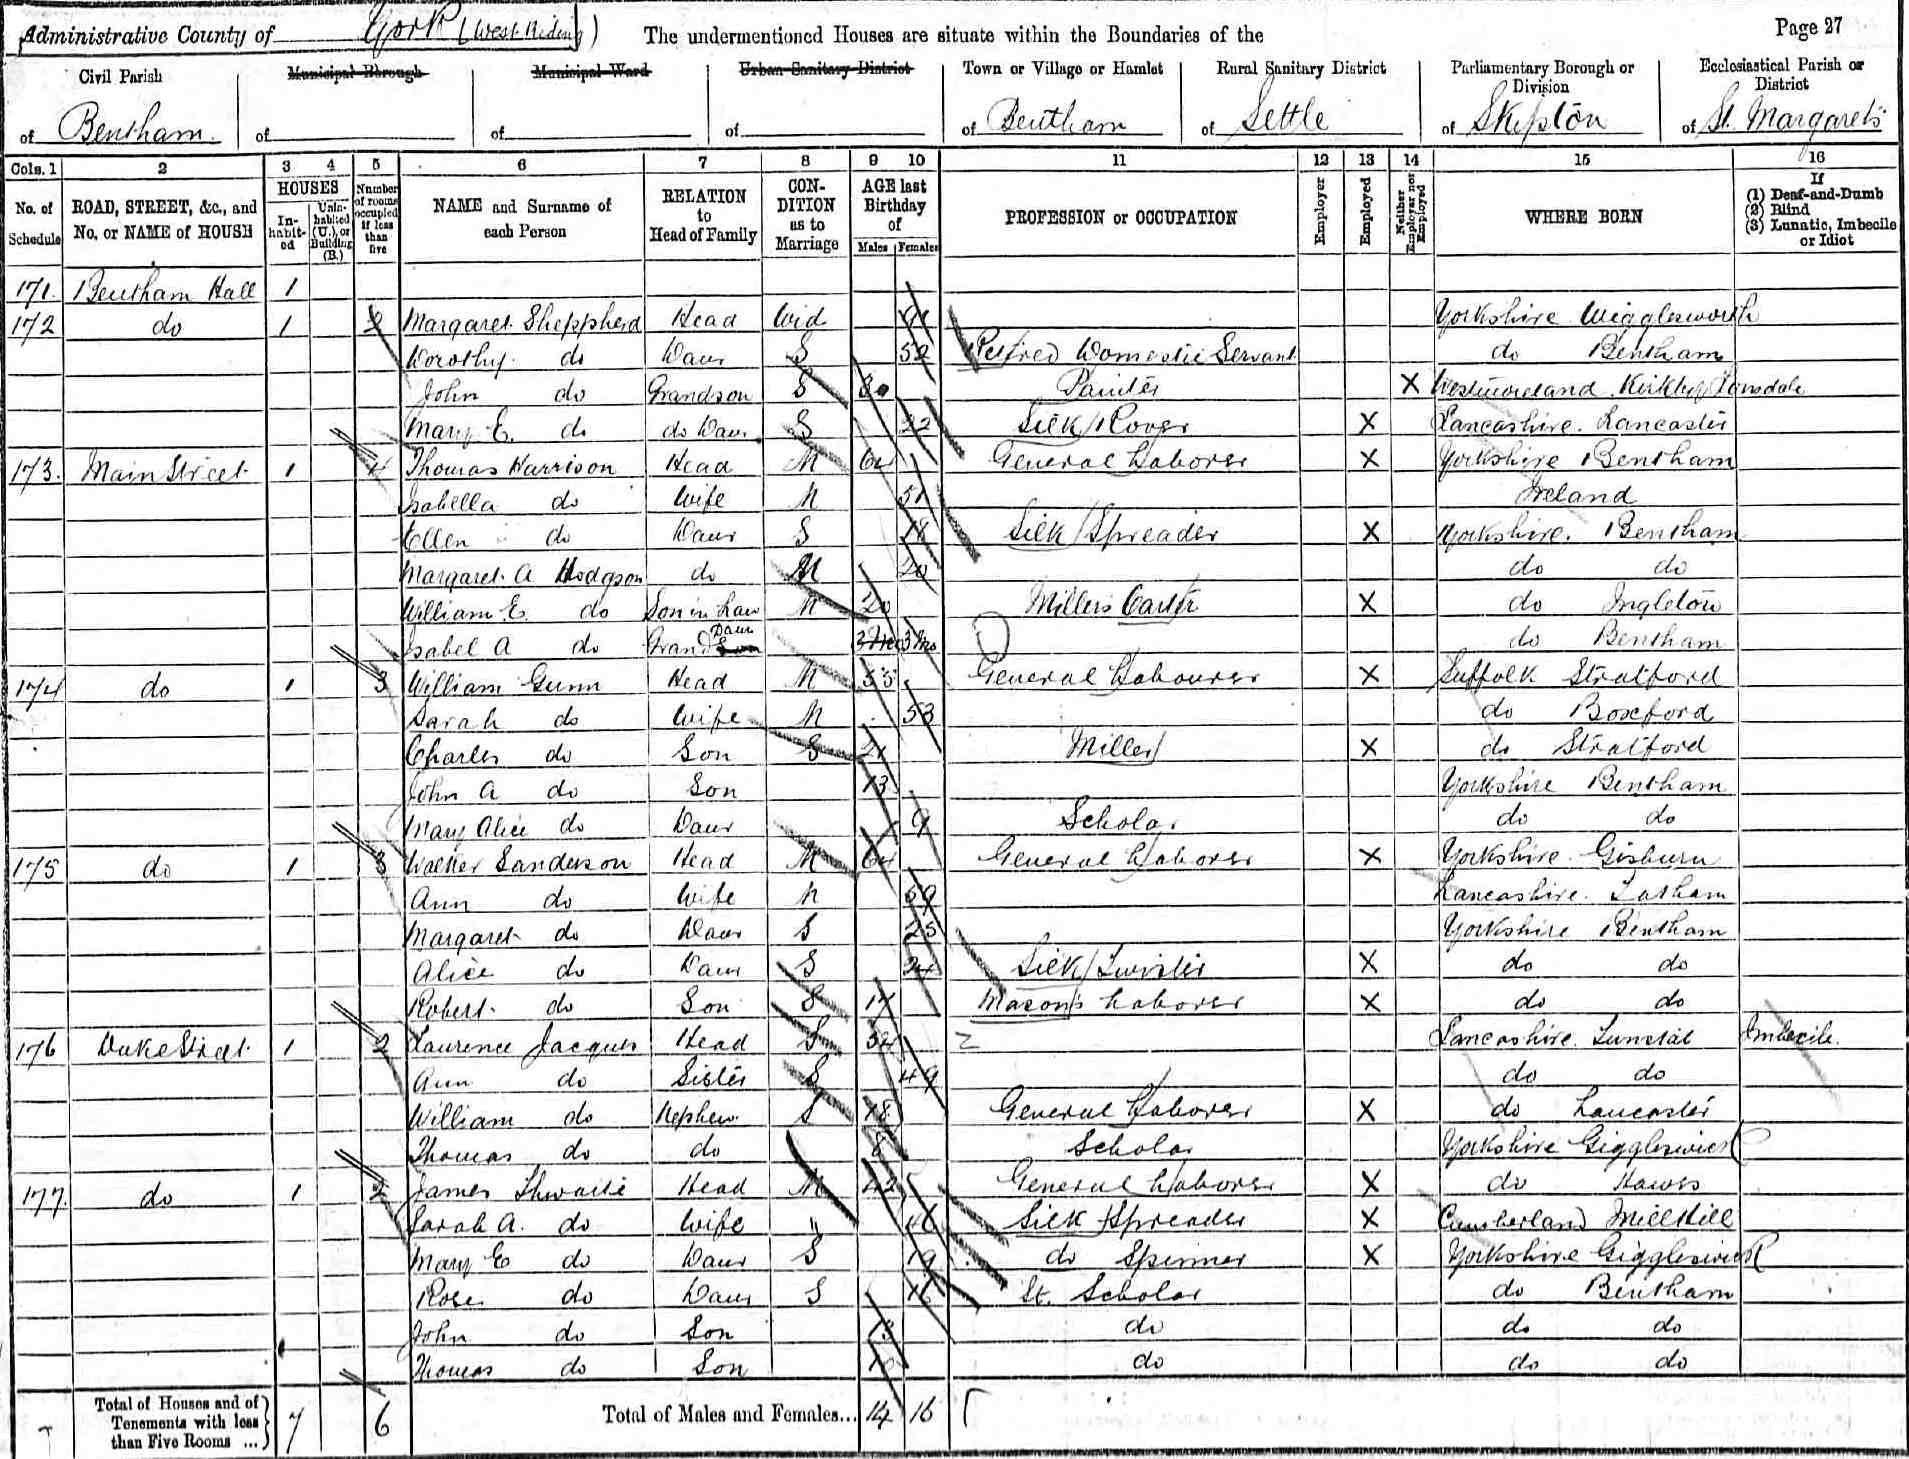 Administrative County of York (West Riding) The undermentioned Houses are situate within the Boundaries of the Page 27
Civil Parish Municipal Borough Municipal Ward Urban Sanitary District Town or Village or Hamlet Rural Sanitary District Parliamentary Borough or Division Ecclesiastical Parish or District
of Bentham of of of of Bentham of Settle of Skipton of St. Margaret's
Cols. 1 2 3 4 5 6 7 8 9 10 11 12 13 14 15 16
No. of Schedule ROAD, STREET, &c., and No. or NAME of HOUSE HOUSES Inhabited Uninhabited (U.), or Building (B.) Number of rooms occupied if less than five NAME and Surname of each Person RELATION to Head of Family CONDITION as to Marriage AGE last Birthday of Males Females PROFESSION or OCCUPATION Employer Employed Neither Employer nor Employed WHERE BORN If (1) Deaf-and-Dumb (2) Blind (3) Lunatic, Imbecile or Idiot
171. Bentham Hall 1
172 do 1 2 Margaret Sheppherd Head Wid 91 Yorkshire Wigglesworth
Dorothy do Daur S 52 Retired Domestic Servant do Bentham
John do Grandson S 30 Painter X Westmoreland. Kirkby Lonsdale
Mary E. do do Daur S 22 Silk Rover X Lancashire. Lancaster
173. Main Street 1 4 Thomas Harrison Head M 64 General Laborer X Yorkshire Bentham
Isabella do Wife M 51 Ireland
Ellen do Daur S 18 Silk Spreader X Yorkshire. Bentham
Margaret A Hodgson do M 20 do do
William E. do Son in Law M 20 Millers Carter X do Ingleton
Isabel A do Grand Daur 3 Mo do Bentham
174 do 1 3 William Gunn Head M 55 General Labourer X Suffolk Stratford
Sarah do Wife M 53 do Boxford
Charles do Son S 21 Miller X do Stratford
John A do Son 13 Yorkshire Bentham
Mary Alice do Daur 9 Scholar do do
175 do 1 3 Walker Sanderson Head M 64 General Laborer X Yorkshire Gisburn
Ann do Wife M 59 Lancashire. Tatham
Margaret do Daur S 25 Yorkshire Bentham
Alice do Daur S 24 Silk Twister X do do
Robert do Son S 17 Mason's Laborer X do do
176 Duke Street 1 2 Laurence Jacques Head S 54 Lancashire. Tunstal Imbecile.
Ann do Sister S 49 do do
William do Nephew S 18 General Laborer X do Lancaster
Thomas do do 8 Scholar Yorkshire Giggleswick
177. do 1 2 James Thwaite Head M 42 General Laborer X do Hawes
Sarah A. do Wife " 46 Silk Spreader X Cumberland Mill Hill
Mary E do Daur S 19 do Spinner X Yorkshire Giggleswick
Rose do Daur S 16 St. Scholar do Bentham
John do Son 13 do do do
Thomas do Son 10 do do do
Total of Houses and of Tenements with less than Five Rooms ... 7 6 Total of Males and Females... 14 16